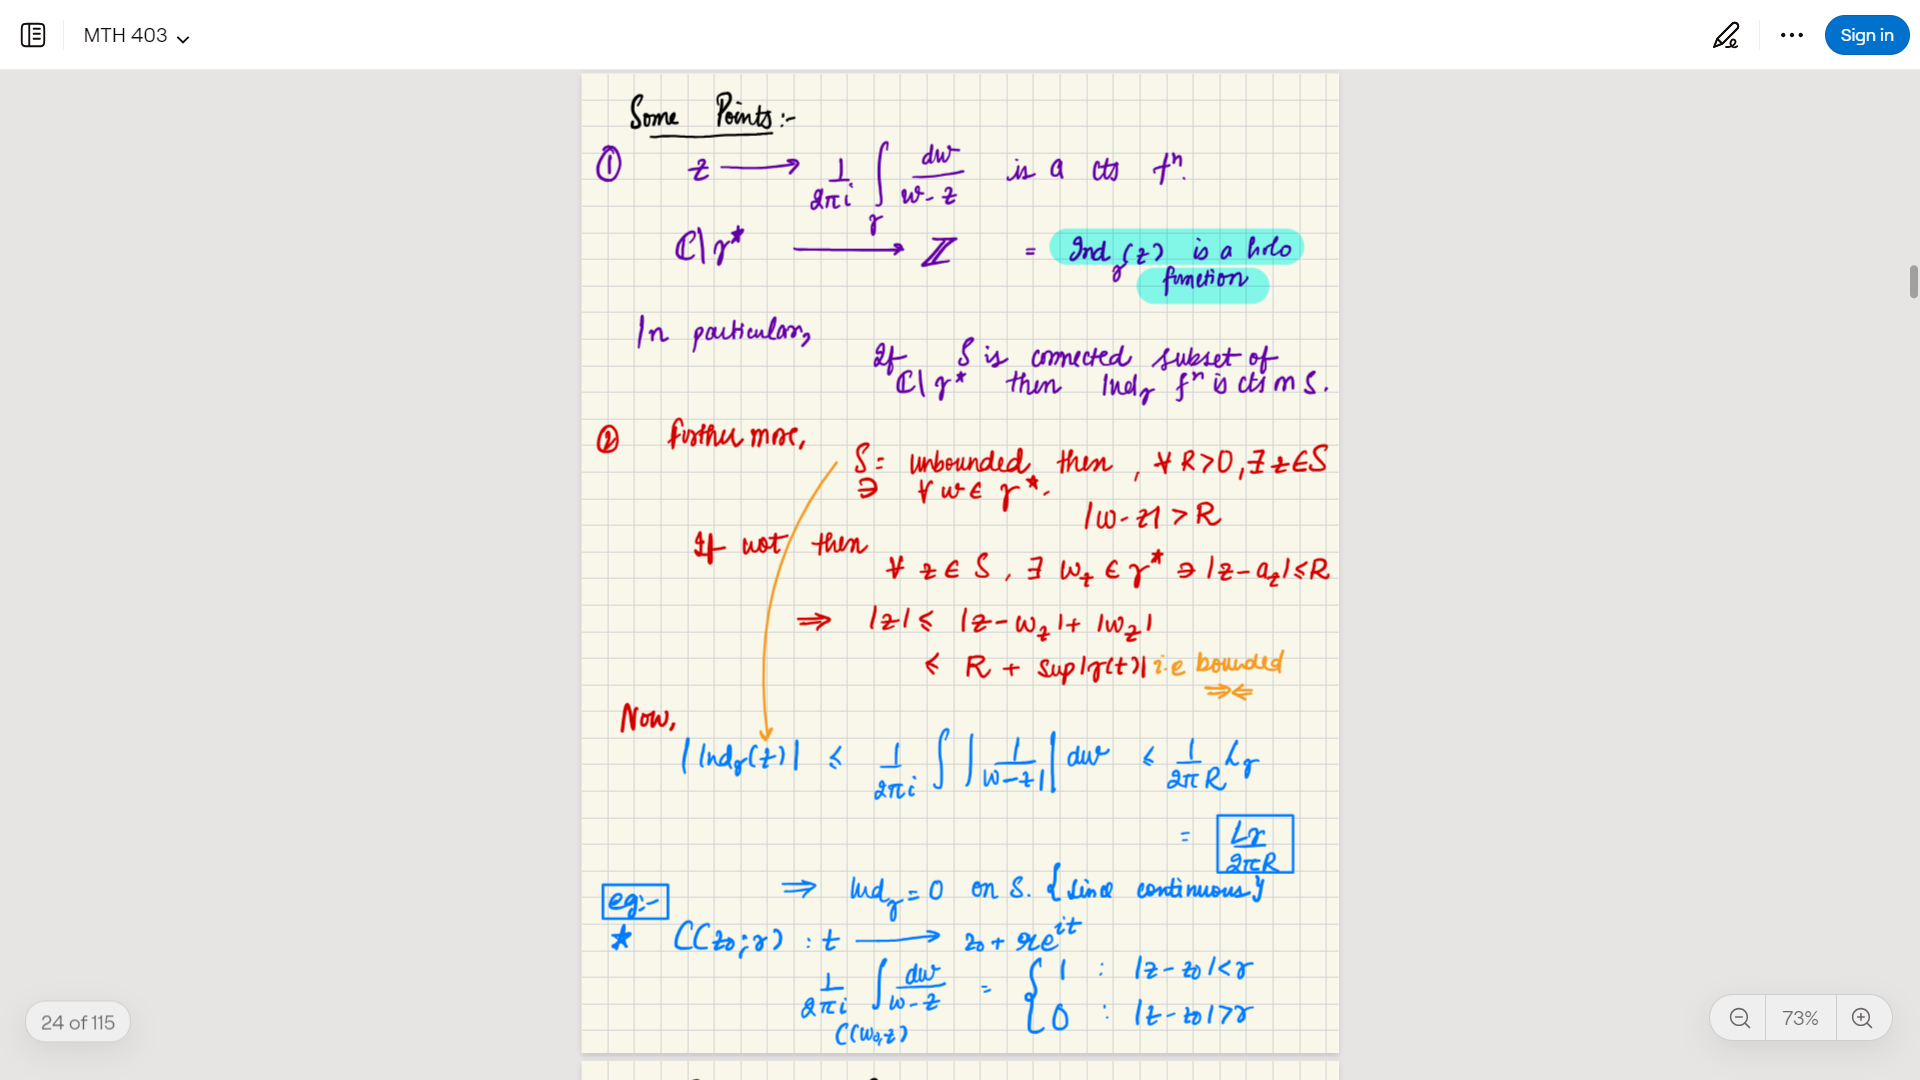 MTH 403
Sign in
Some Points:-
① z ⟶ 1/2πi ∫_γ dw/w-z is a cts fⁿ.
ℂ\γ* ⟶ ℤ = Ind_γ(z) is a holo
function
In particular,
If S is connected subset of
ℂ\γ* then Ind_γ fⁿ is cts on S.
② Further more,
S = unbounded then, ∀ R>0, ∃ z∈S
∋ ∀ w ∈ γ*.
|w-z| > R
If not then
∀ z ∈ S, ∃ w_z ∈ γ* ∋ |z-a_z| ≤ R
⇒ |z| ≤ |z-w_z| + |w_z|
≤ R + sup|γ(t)| i.e bounded
⇒⇐
Now,
|Ind_γ(z)| ≤ 1/2πi ∫ |1/w-z|| dw ≤ 1/2πR L_γ
= Lγ/2πR
⇒ Ind_γ = 0 on S. {since continuous}
eg:-
★ C(z₀;r) : t ⟶ z₀ + re^{it}
1/2πi ∫_{C(w₀,z)} dw/w-z = { 1 : |z-z₀|<r
0 : |z-z₀|>r
24 of 115
73%